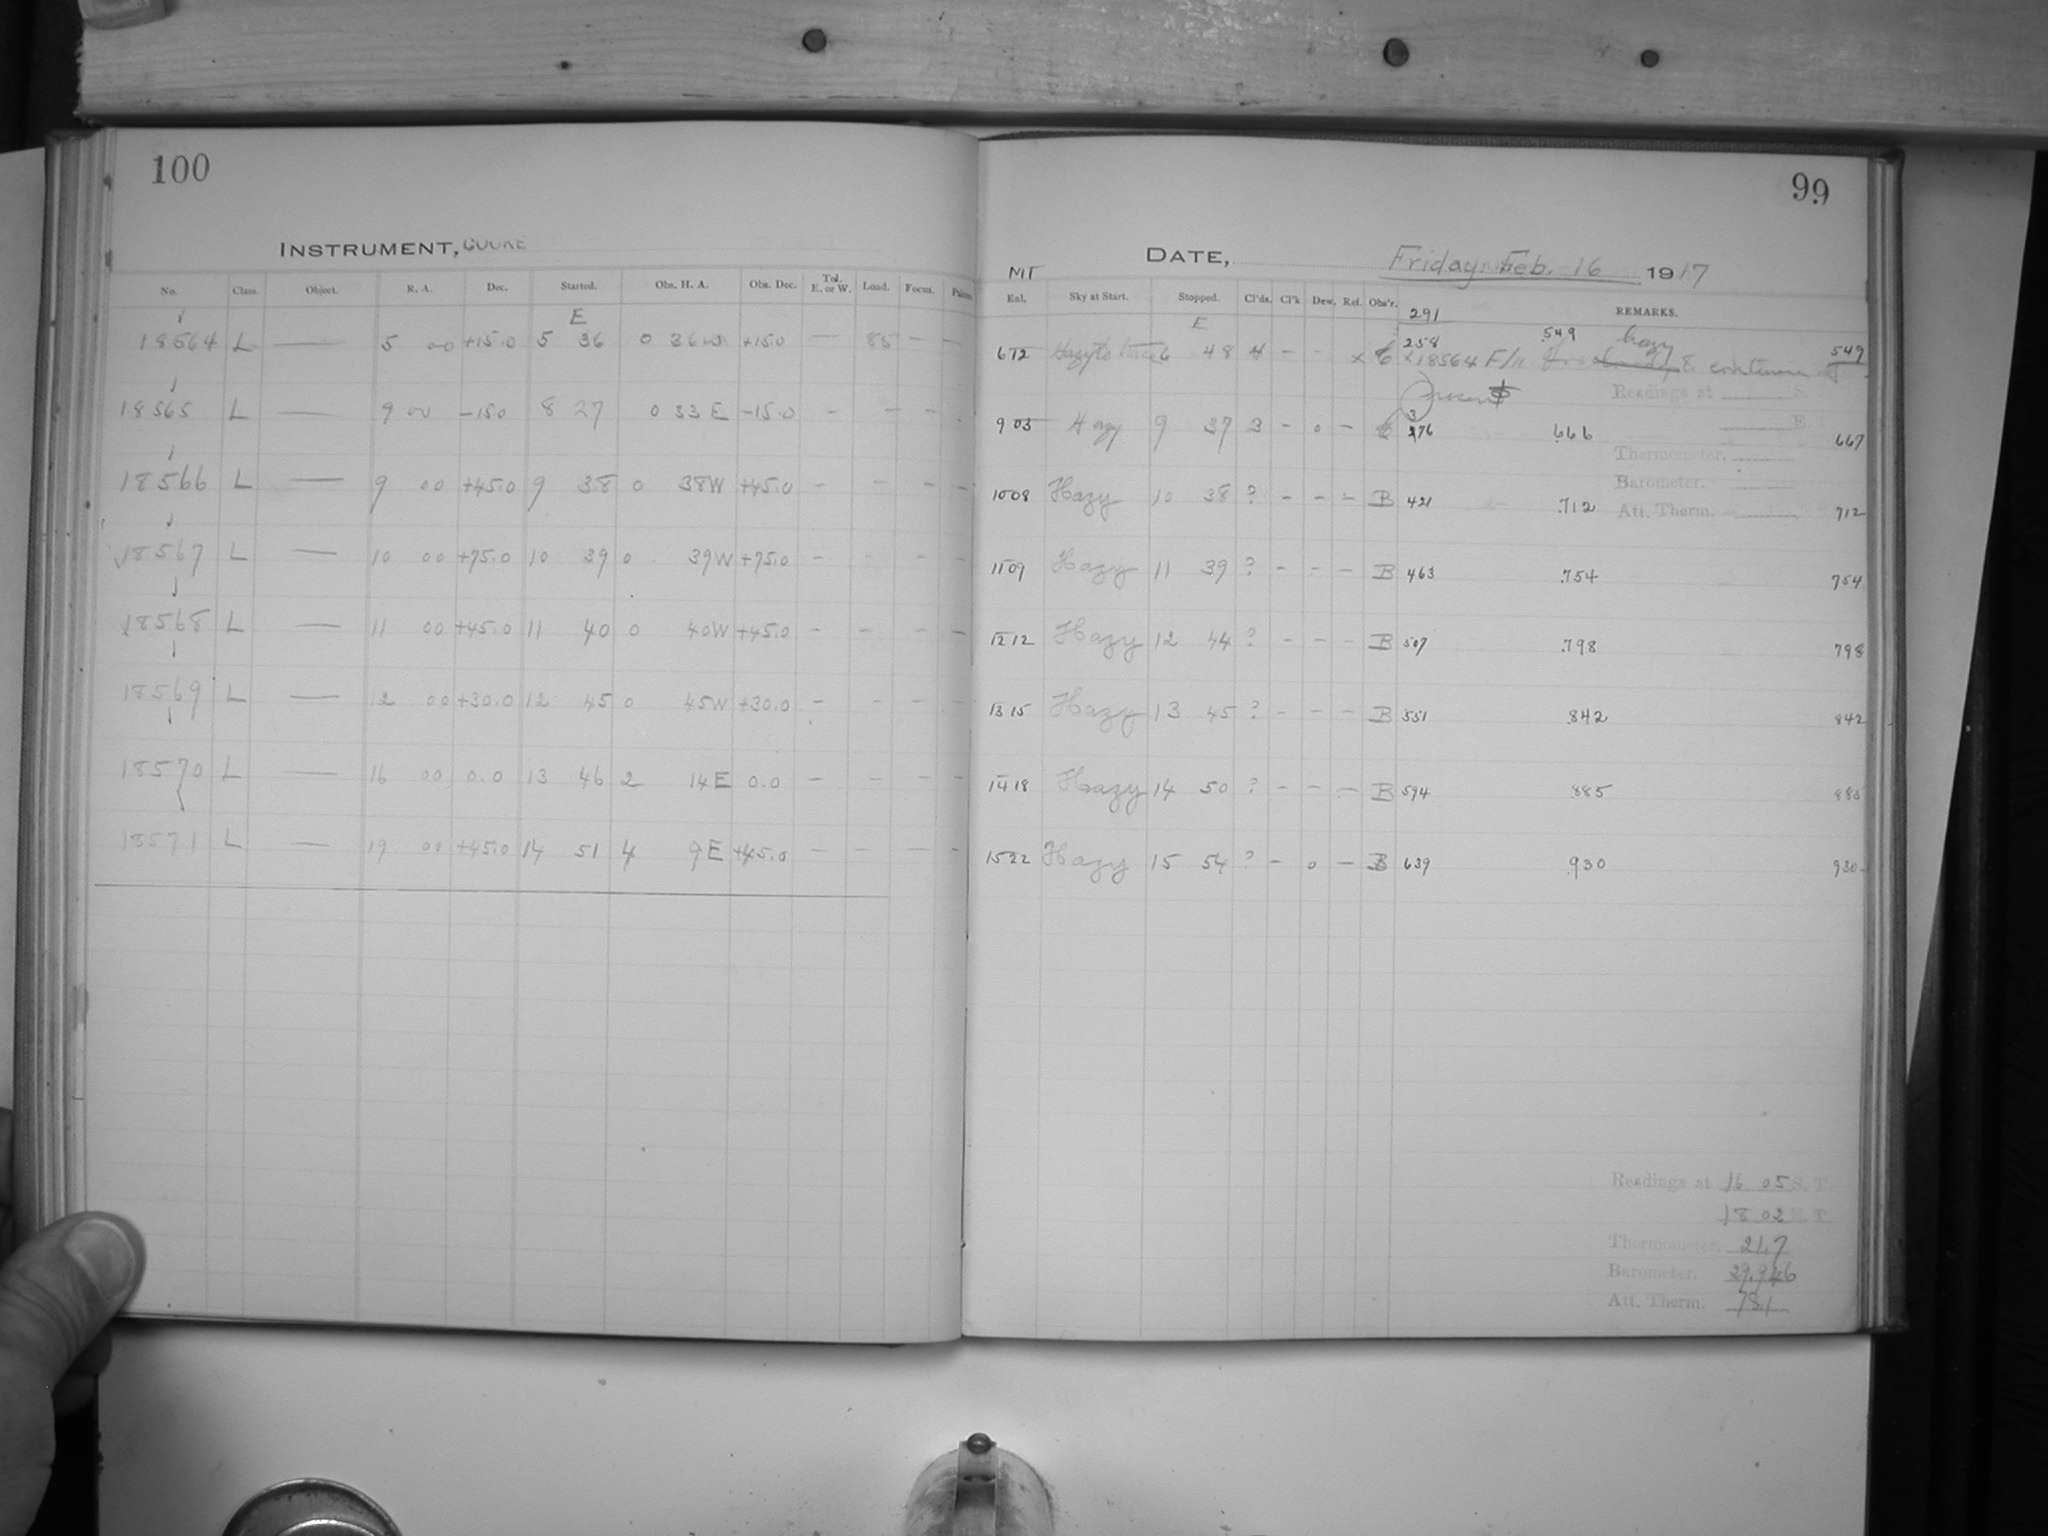 100
INSTRUMENT, COOKE
No. Class. Object. R. A. Dec. Started. Obs. H. A. Obs. Dec. Tel. E. or W. Load. Focus.
E
18564 L — 5 00 +15.0 5 36 0 36 W +15.0 — 85 — —
18565 L — 9 00 -15.0 8 27 0 33 E -15.0 - - - -
18566 L — 9 00 +45.0 9 38 0 38W +45.0 - - - -
18567 L — 10 00 +75.0 10 39 0 39W +75.0 - - - -
18568 L — 11 00 +45.0 11 40 0 40W +45.0 - - - -
18569 L — 12 00 +30.0 12 45 0 45W +30.0 - - - -
18570 L — 16 00 0.0 13 46 2 14E 0.0 - - - -
18571 L — 19 00 +45.0 14 51 4 9E +45.0 - - - -
99
DATE, Friday Feb. 16 1917
MT
Eal. Sky at Start. Stopped. Cl'ds. Cl'k Dew. Ref. Obs'r. 291 REMARKS.
E
258 .549 hazy 549
672 Hazy to 6 48 4 - - x C x18564 F/11 & continuous
Readings at S. T.
903 Hazy 9 37 3 - 0 - C 376 .666 E. T. 667
Thermometer.
Barometer.
1008 Hazy 10 38 ? - - - B 421 .712 Att. Therm. 712
1109 Hazy 11 39 ? - - - B 463 .754 754
1212 Hazy 12 44 ? - - - B 507 .798 798
1315 Hazy 13 45 ? - - - B 551 .842 842
1418 Hazy 14 50 ? - - - B 594 .885 885
1522 Hazy 15 54 ? - 0 - B 639 .930 930
Readings at 16 05 S. T.
18 02 E. T.
Thermometer. 21.7
Barometer. 29.946
Att. Therm.